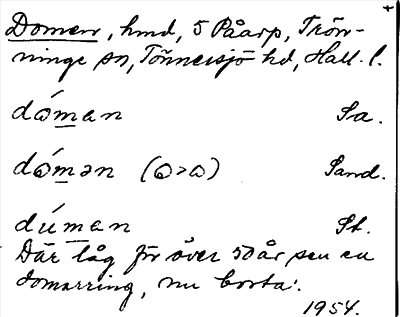 Domen, hmd, 5 Påarp, Trön-
ninge sn, Tönnersjö hd, Hall. l.
dóman Sa.
dómən (o>ɷ) Sand.
dúman St.
Där låg för över 50 år sen en
domarring, nu borta.
1954.